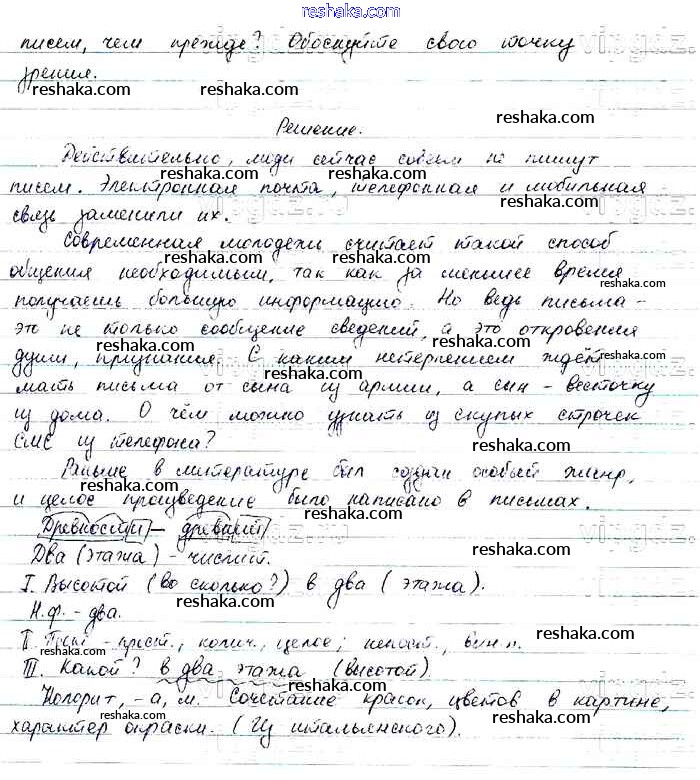 reshaka.com
писем, чем прежде? Обоснуйте свою точку
зрения.
reshaka.com reshaka.com
reshaka.com
Решение.
Действительно, люди сейчас совсем не пишут
reshaka.com reshaka.com
писем. Электронная почта, телефонная и мобильная
связь заменили их.
Современная молодежь считает такой способ
reshaka.com reshaka.com
общения необходимым, так как за меньшее время
reshaka.com
получаешь большую информацию. Но ведь письма –
reshaka.com
это не только сообщение сведений, а это откровения
reshaka.com
души, признания. С каким нетерпением ждёт
reshaka.com
мать письма от сына из армии, а сын – весточку
reshaka.com
из дома. О чём можно узнать из скупых строчек
reshaka.com
СМС из телефона?
reshaka.com
Раньше в литературе был создан особый жанр,
reshaka.com
и целое произведение было написано в письмах.
reshaka.com
Древностный – древний
reshaka.com
Два (этажа) – числит.
reshaka.com
I. Высотой (во сколько?) в два (этажа).
reshaka.com
Н.ф. – два.
reshaka.com
II. Пост. – прост., колич., целое; непост., вин. п.
reshaka.com
III. Какой? в два этажа (высотой)
reshaka.com
Колорит, -а, м. Сочетание красок, цветов в картине,
reshaka.com reshaka.com
характер окраски. (Из итальянского).
reshaka.com